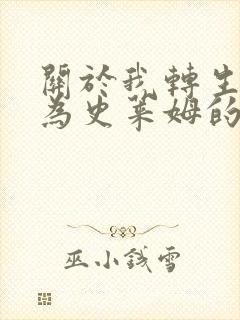 關於我轉生
為史萊姆的
巫小錢雪